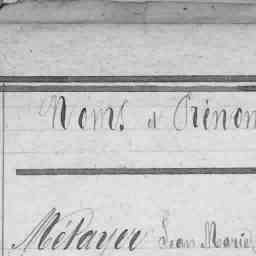 Noms et Prénom
Métayer Jean Marie